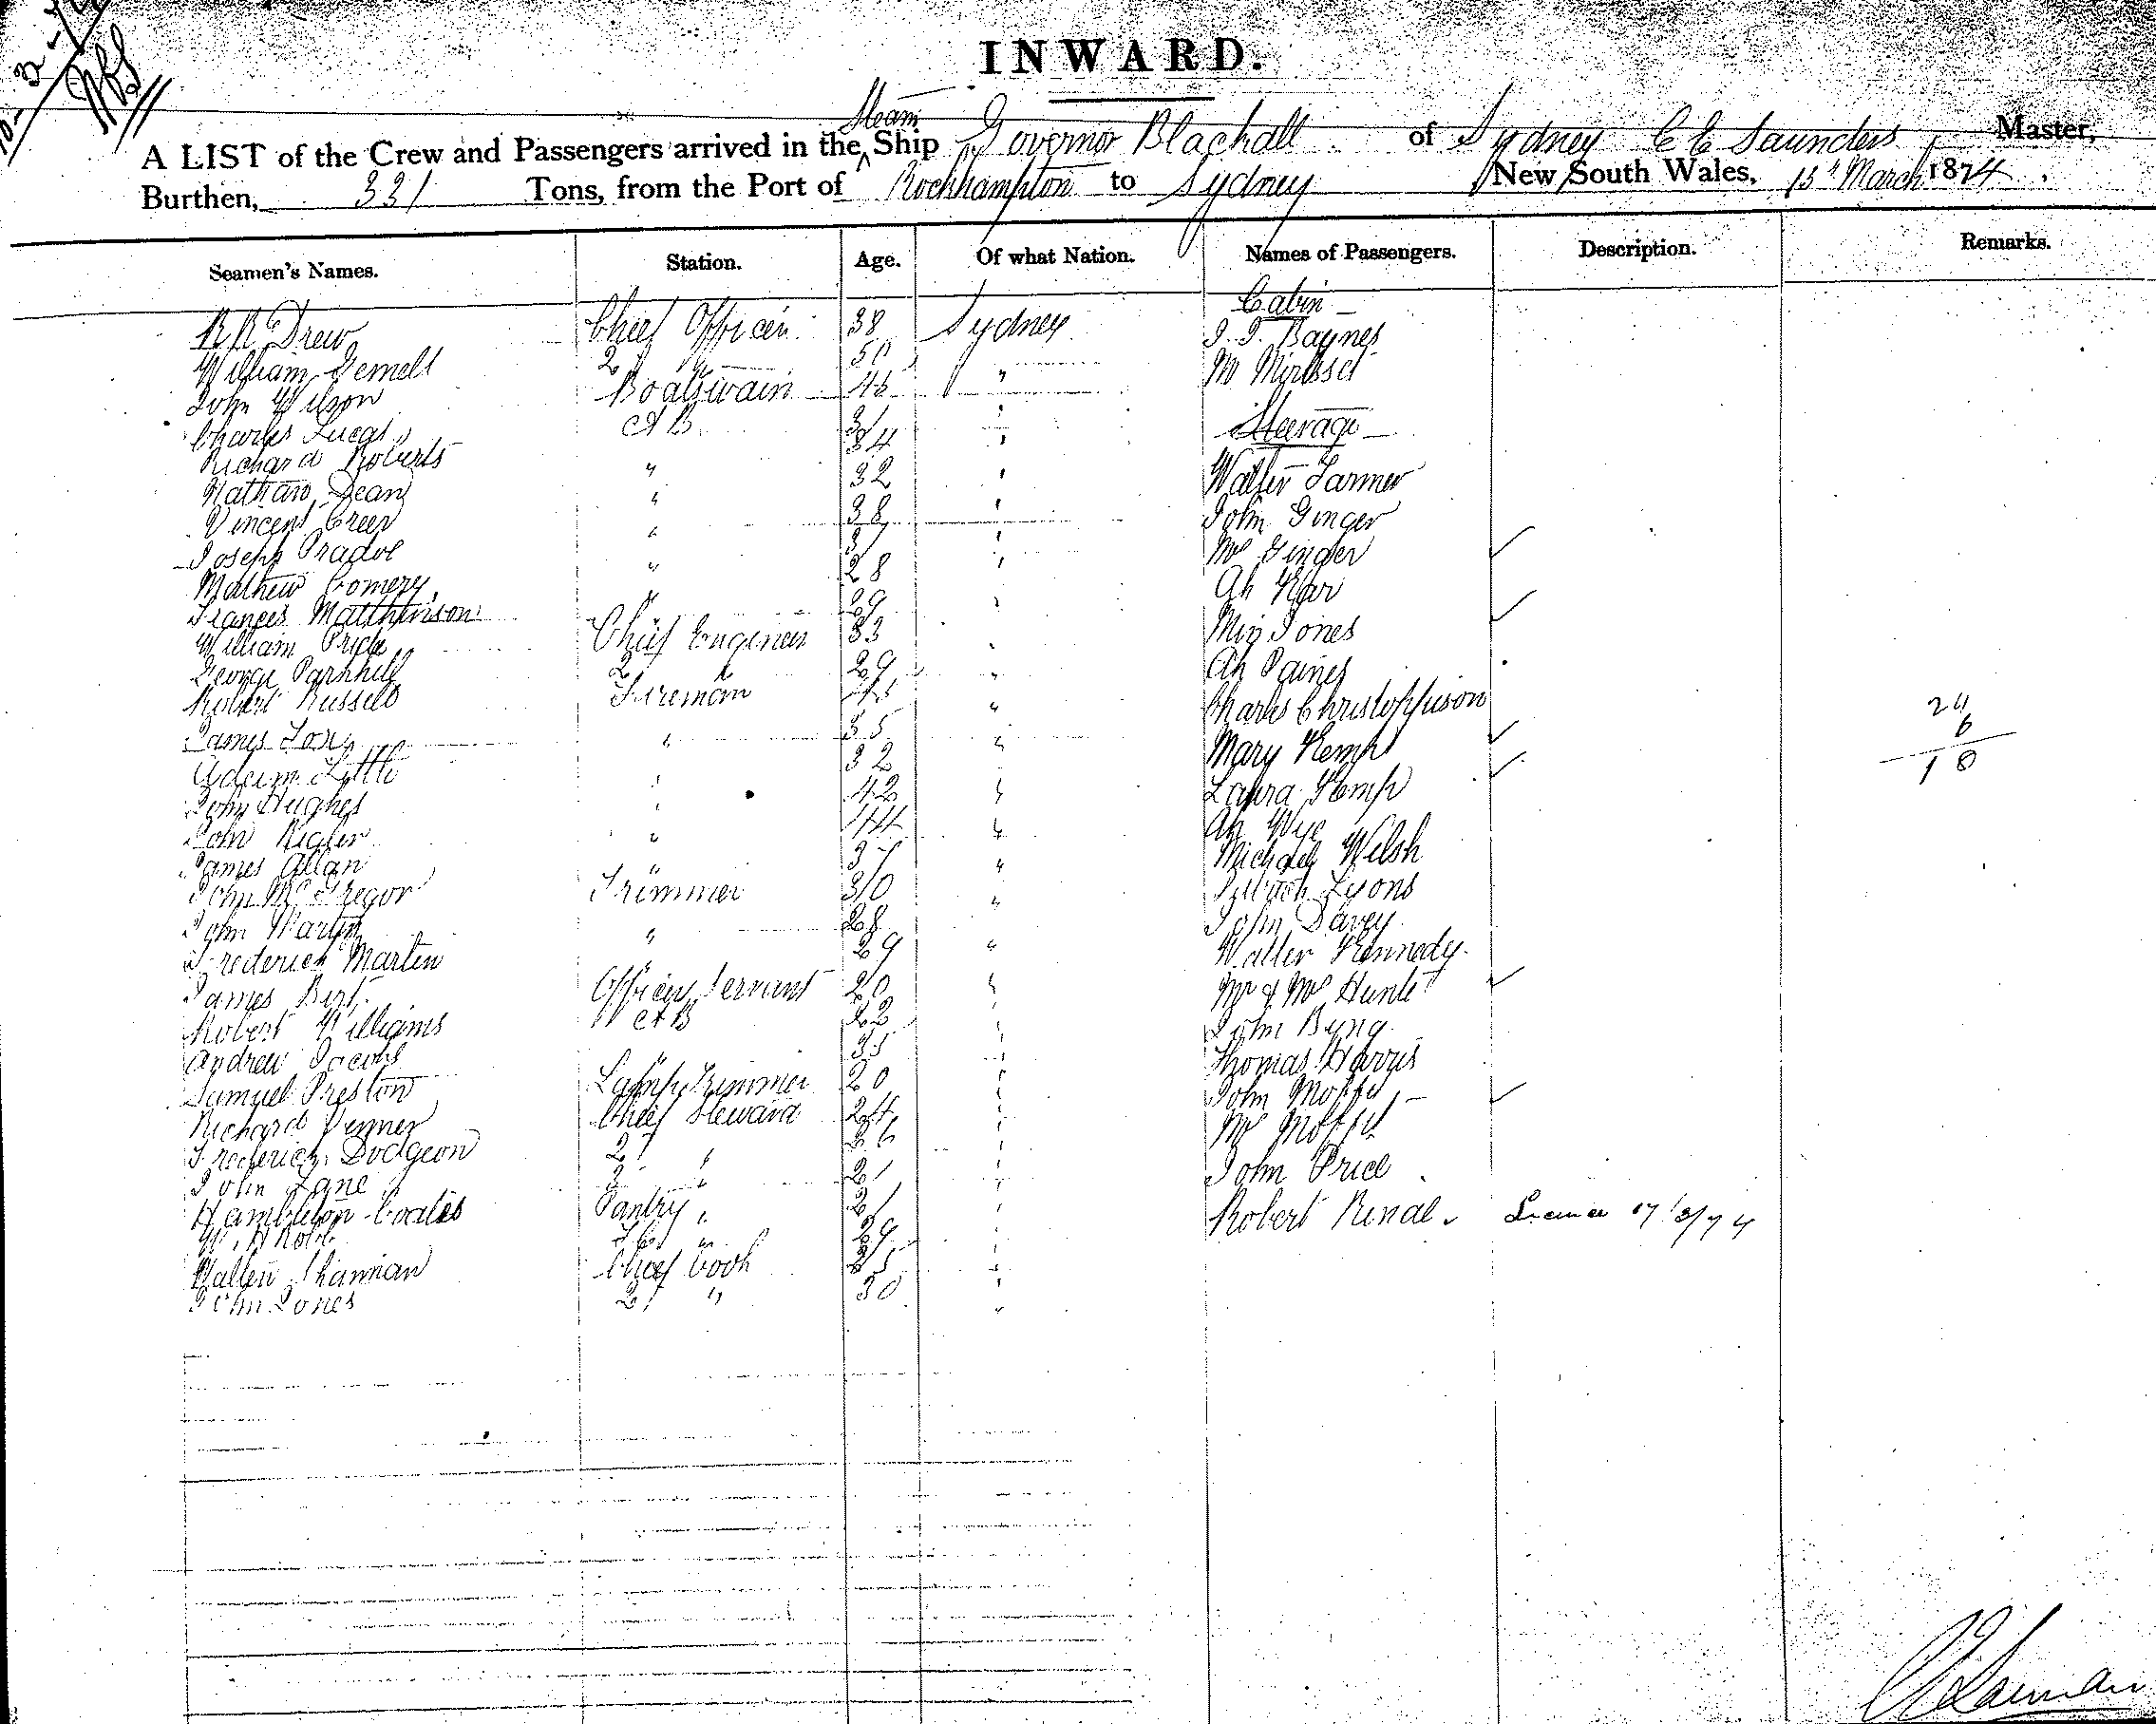 INWARD.
A LIST of the Crew and Passengers arrived in the Steam Ship Governor Blackall of Sydney C C Saunders Master,
Burthen, 331 Tons, from the Port of Rockhampton to Sydney New South Wales, 15th March 1874.
Seamen's Names. Station. Age. Of what Nation. Names of Passengers. Description. Remarks.
Cabin
R R Drew Chief Officer 38 Sydney J. J. Baynes
William Gemell 2 " 50 " M
John Wilson Boatswain 46 "
Charles Lucas A B 31 " Steerage
Richard Roberts 34 "
Nathan Dean " 32 " Walter Farmer
Vincent Creer " 38 " John Ginger
Joseph Pradoe " 37 " Mrs Ginger
Mathew Comery " 28 " Ah
Frances Matthewson " 29 " Miss Jones
William Pride Chief Engineer 33 "
George Parkhill 2 " 29 " Ah
Robert Russell Fireman " Charles
James Fox " 35 " Mary Kemp 24
Adam Little " 32 " Laura Kemp 6
John Hughes " 42 " Ah Wye 18
John Rigler " 44 " Michael Welsh
James Allan " 37 " Lyons
John McGregor Trimmer 30 " John Davey
John Martin " 28
Frederick Martin " 29 " Walter Kennedy
James Birt Officers Servant 20 " Mr & Mrs Hunt
Robert Williams A B 22 " John Byng
Andrew Jacobs " 35 " Thomas Harris
Samuel Preston Lamp Trimmer 20 " John Moffit
Richard Venner Chief Steward 24 " Mrs Moffit
Frederick Dodgeon 2 " 26 "
John Lane 3 " 21 " John Price
Hambleton Coates Pantry " 21 " Robert Renal 17/3/74
W. H Robb " 29 "
Shannan Chief Cook 35 "
John Jones 2 " 30 "